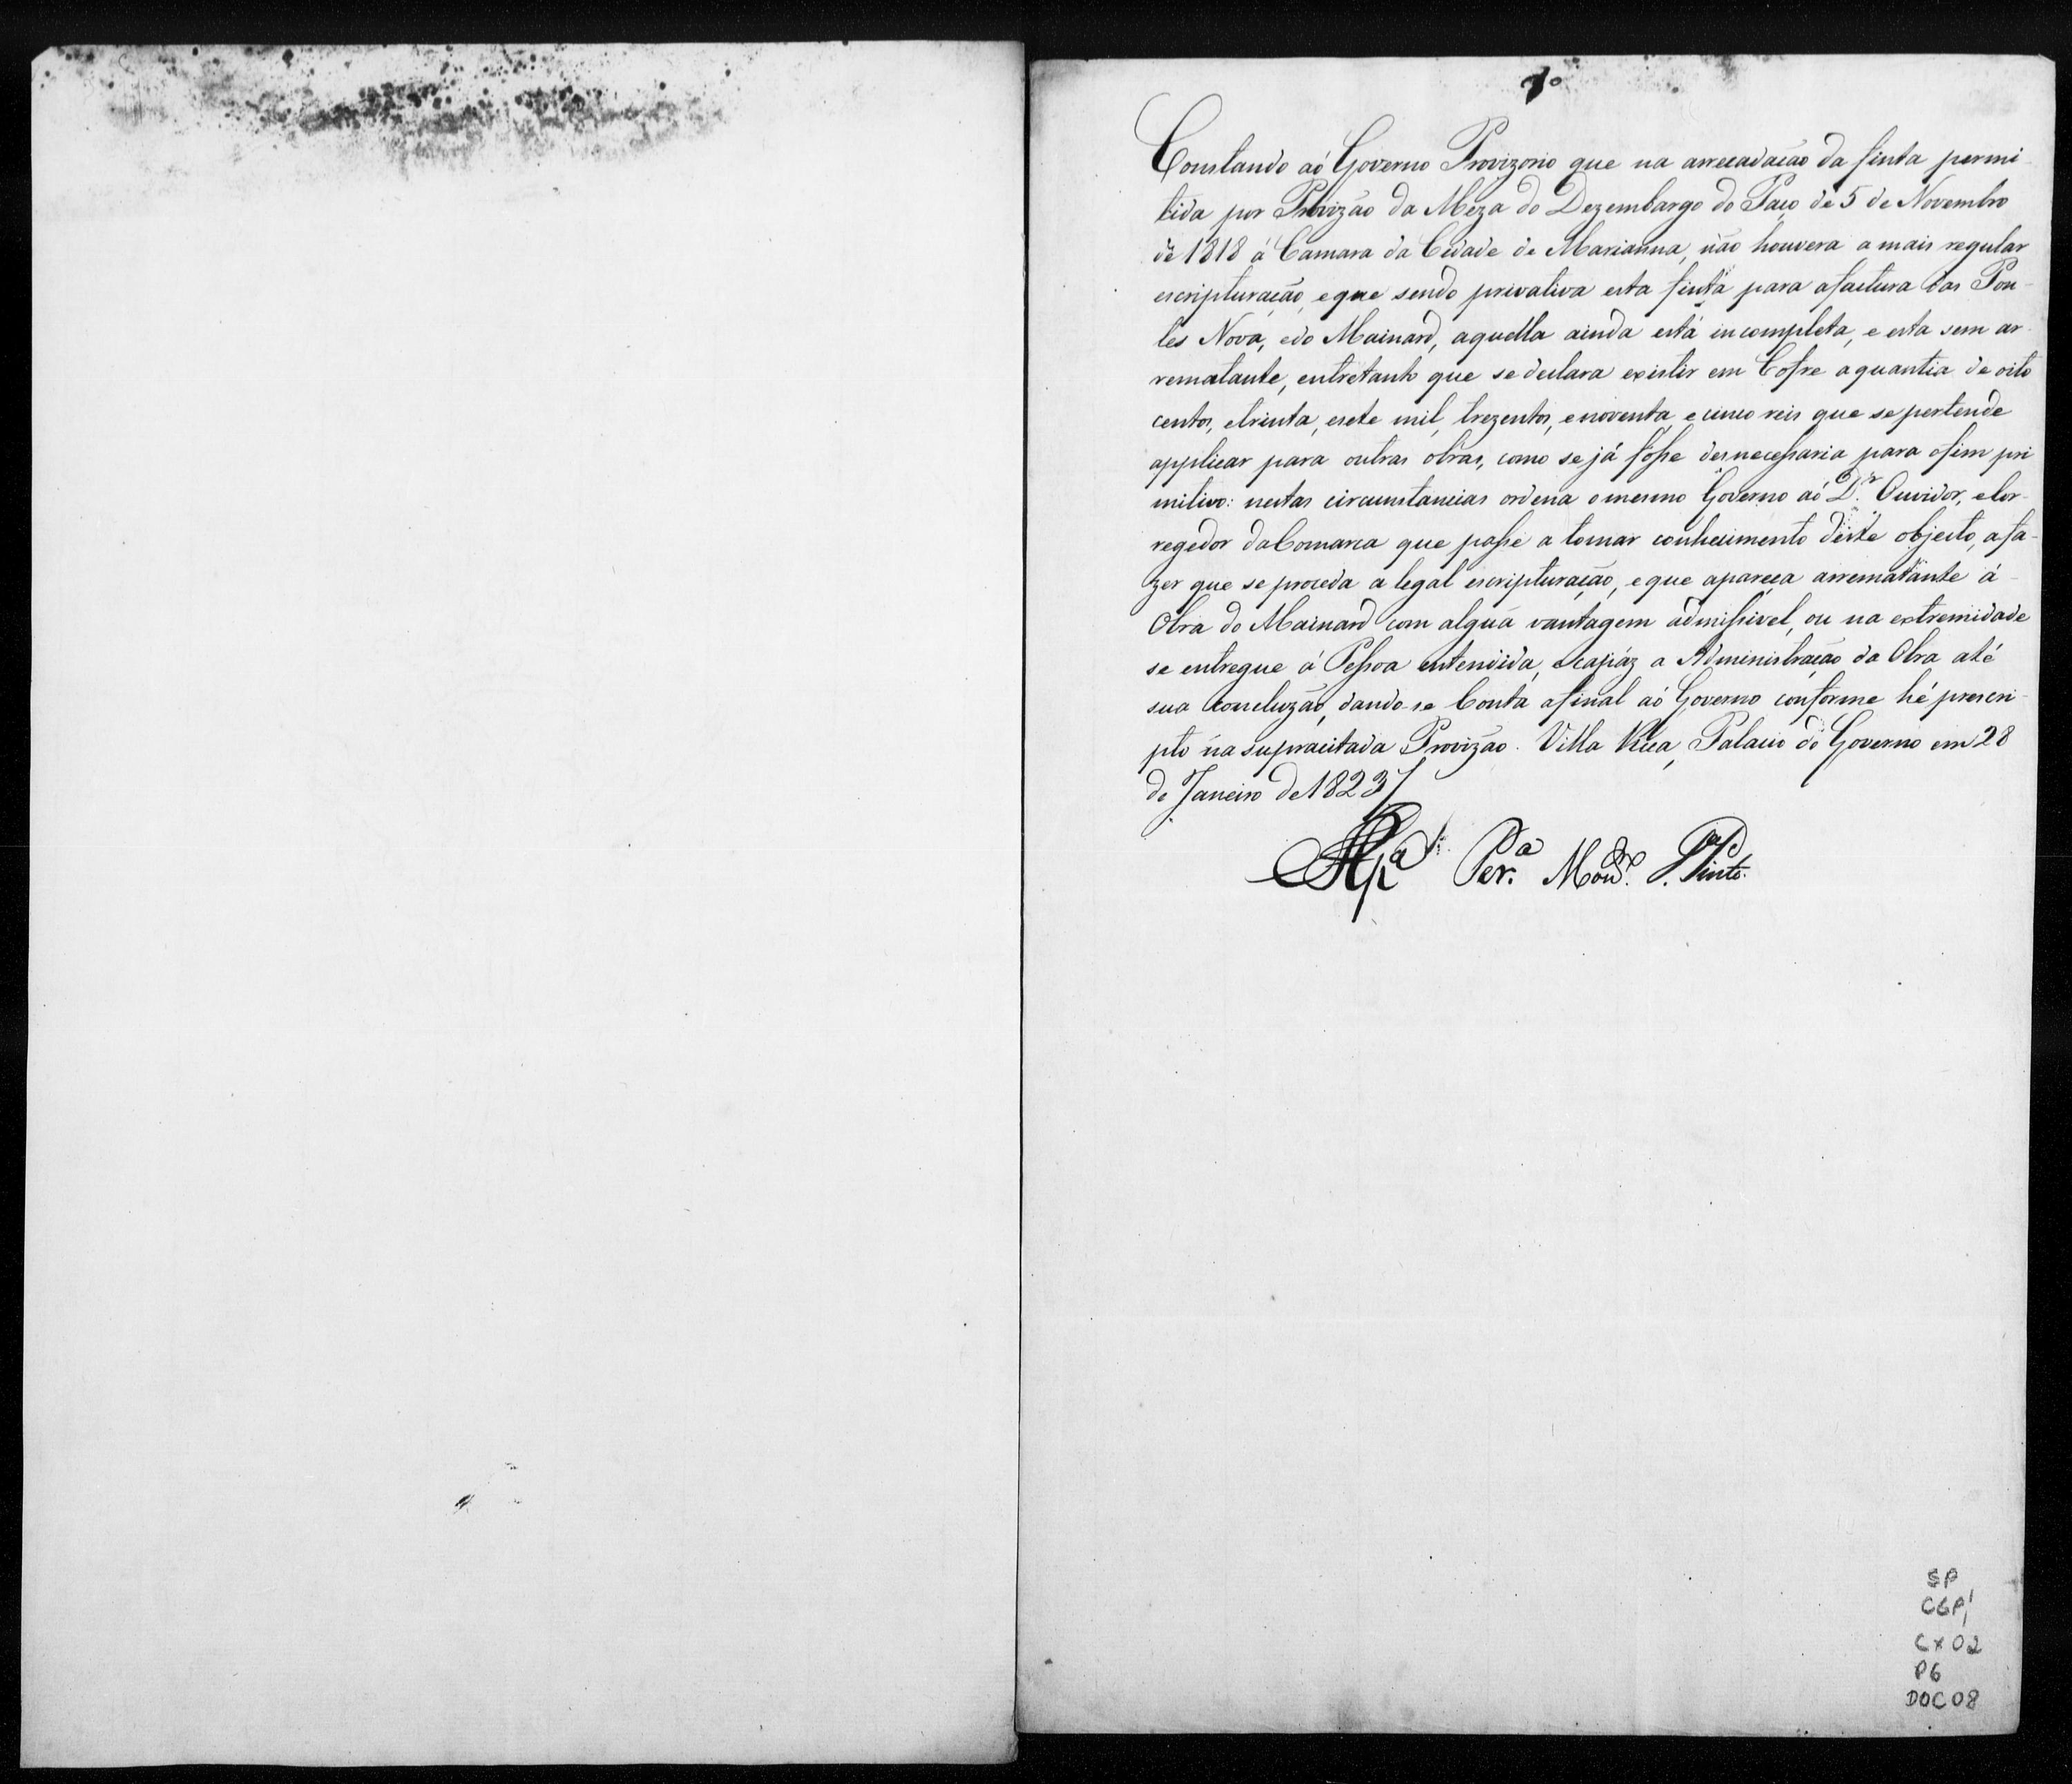 Constando aó Governo Provizorio que na arrecadação da finta permi
tida por Provizão da Meza do Dezembargo do Paço de 5 de Novembro
de 1818 á Camara da Cidade de Marianna, não houvera a mais regular
escripturação, e que sendo privativa esta finta para a factura das Pon-
tes Nova, e do Mainard, aquella ainda está incompleta, e esta sem ar
rematante, entretanto que se declara existir em Cofre a quantia de oito
centos, e trinta, e sete mil, trezentos, e noventa, e cinco reis que se pertende
applicar para outras obras, como se já fosse desnecessaria para o fim pri
mitivo: nestas circunstancias ordena o mesmo Governo aó D.r Ouvidor, e Cor-
regedor da Comarca que passe a tomar conhecimento deste objecto, a fa-
zer que se proceda a legal escripturação, e que apareça arrematante á
Obra do Mainard com alguã vantagem admissivel, ou na extremidade
se entregue á Pessoa entendida, e capáz a Administração da Obra até
sua concluzão, dando-se Conta afinal aó Governo conforme hé prescri-
pto na supracitada Provizão. Villa Rica, Palacio do Governo em 28
de Janeiro de 1823
Per.a Pinto.
SP
CGP1
Cx 02
P6
DOC 08